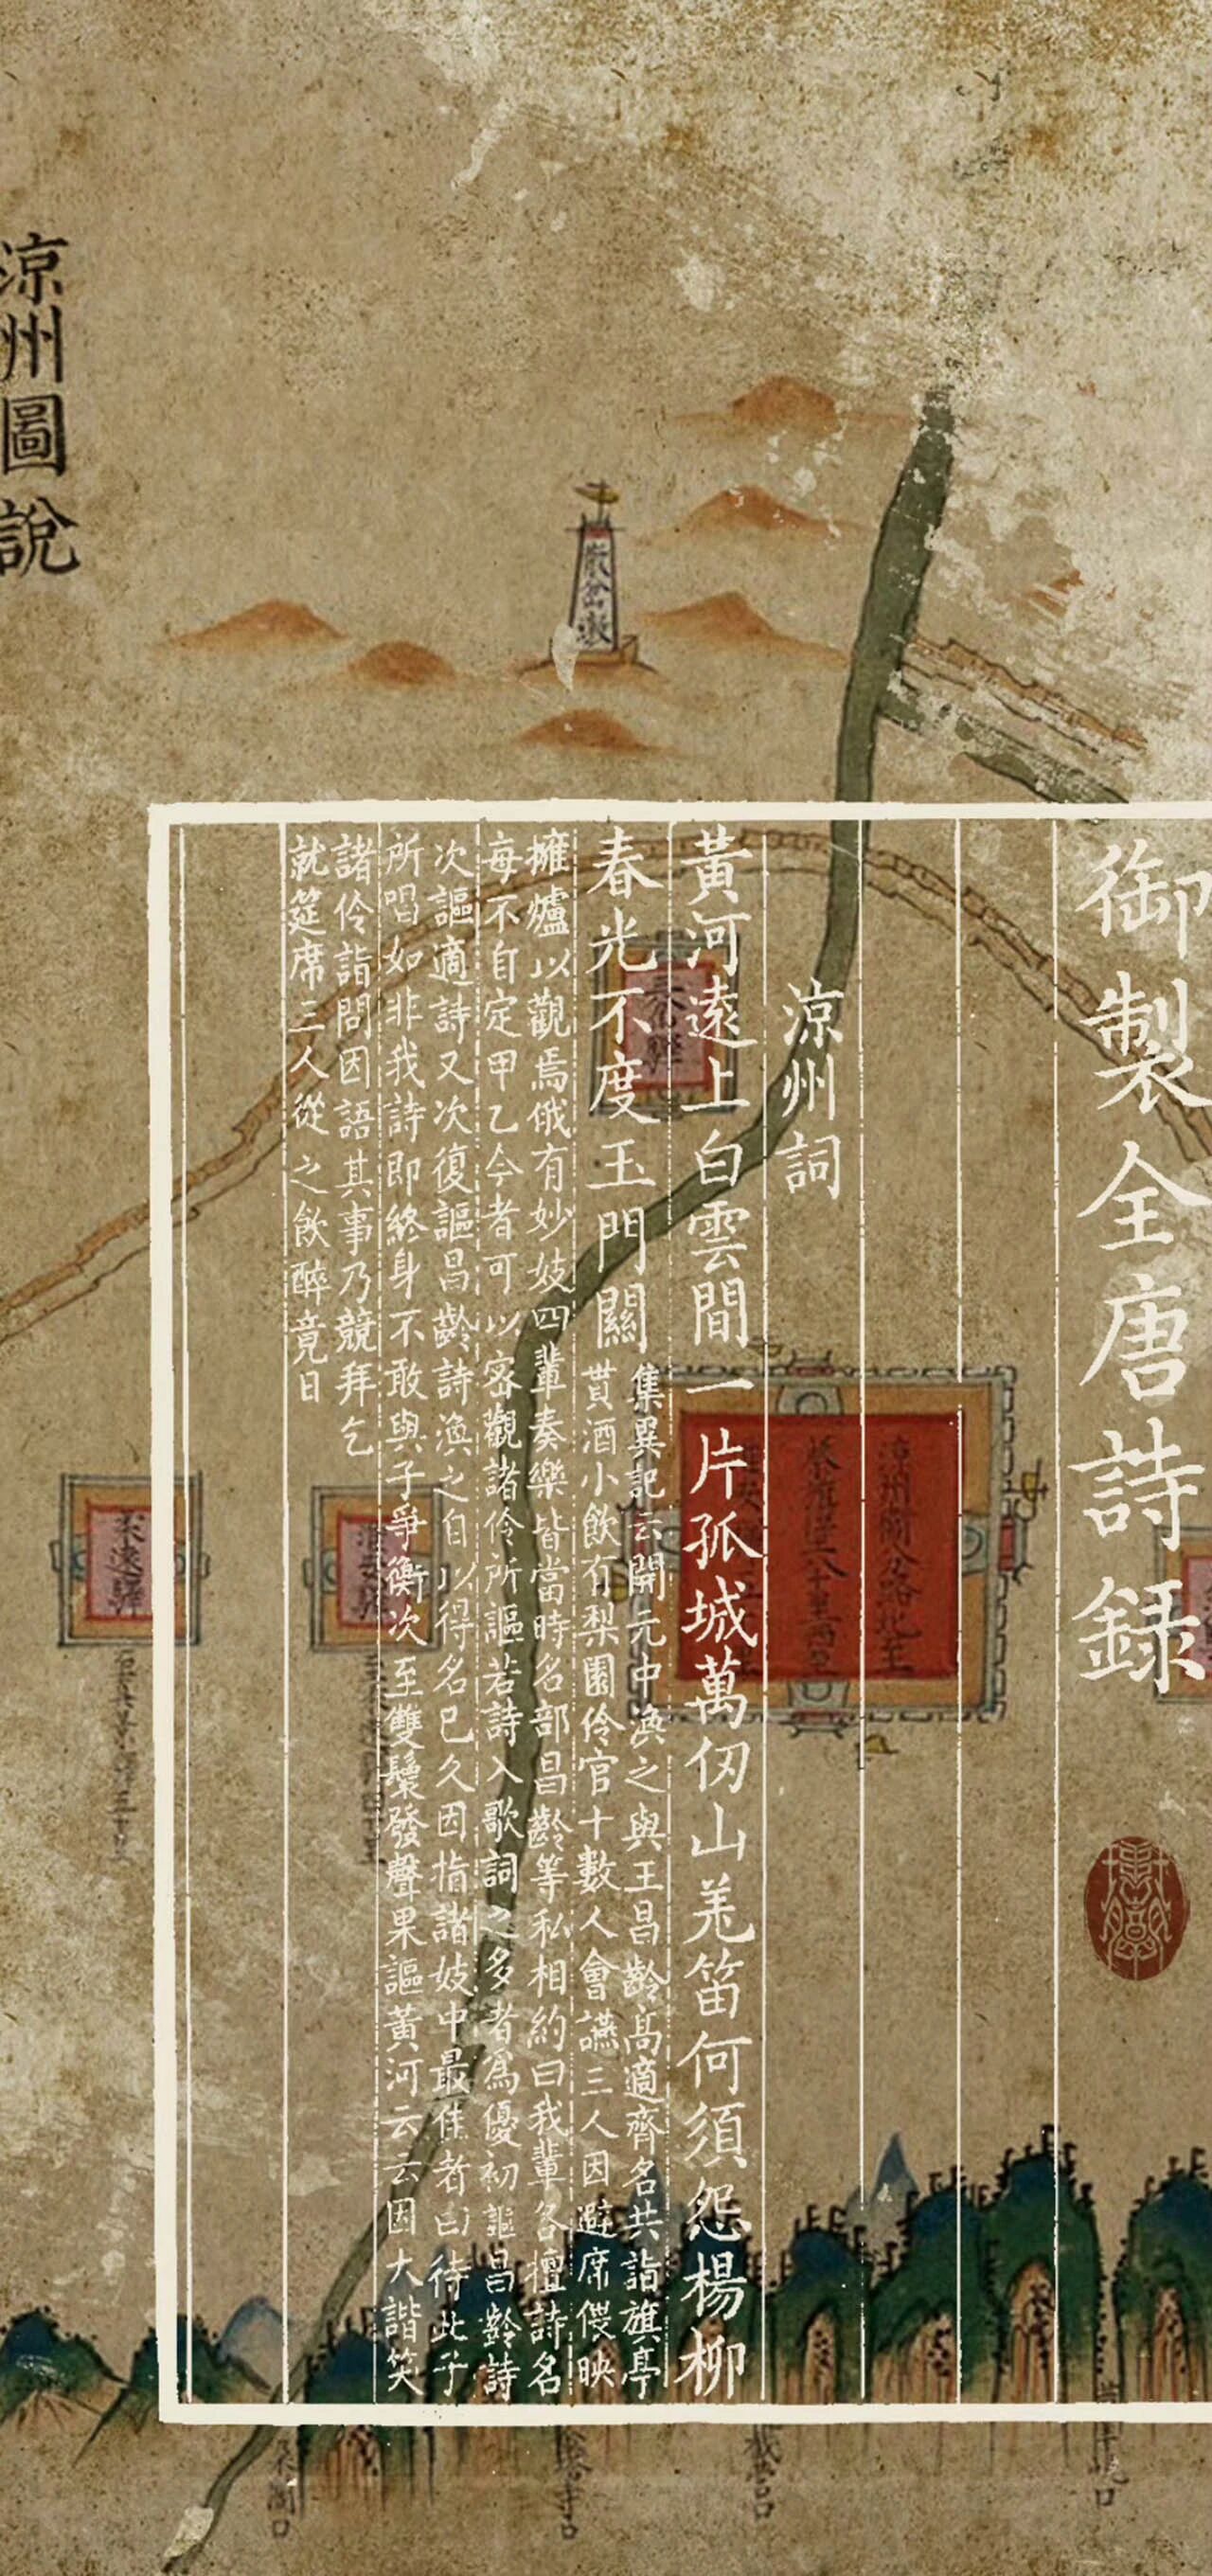 御製全唐詩録
涼州詞
黃河遠上白雲間一片孤城萬仞山羌笛何須怨楊柳
春光不度玉門關
集異記云開元中渙之與王昌齡髙適齊名共詣旗亭
貰酒小飲有梨園伶官十數人會讌三人因避席偎映
擁爐以觀焉俄有妙妓四輩奏樂皆當時名部昌齡等私相約曰我輩各擅詩名
每不自定甲乙今者可以密觀諸伶所謳若詩入歌詞之多者為優初謳昌齡詩
次謳適詩又次復謳昌齡詩渙之自以得名已久因指諸妓中最佳者曰待此子
所唱如非我詩即終身不敢與子爭衡次至雙鬟發聲果謳黃河云云因大諧笑
諸伶詣問因語其事乃競拜乞
就筵席三人從之飲醉竟日
涼州圖說